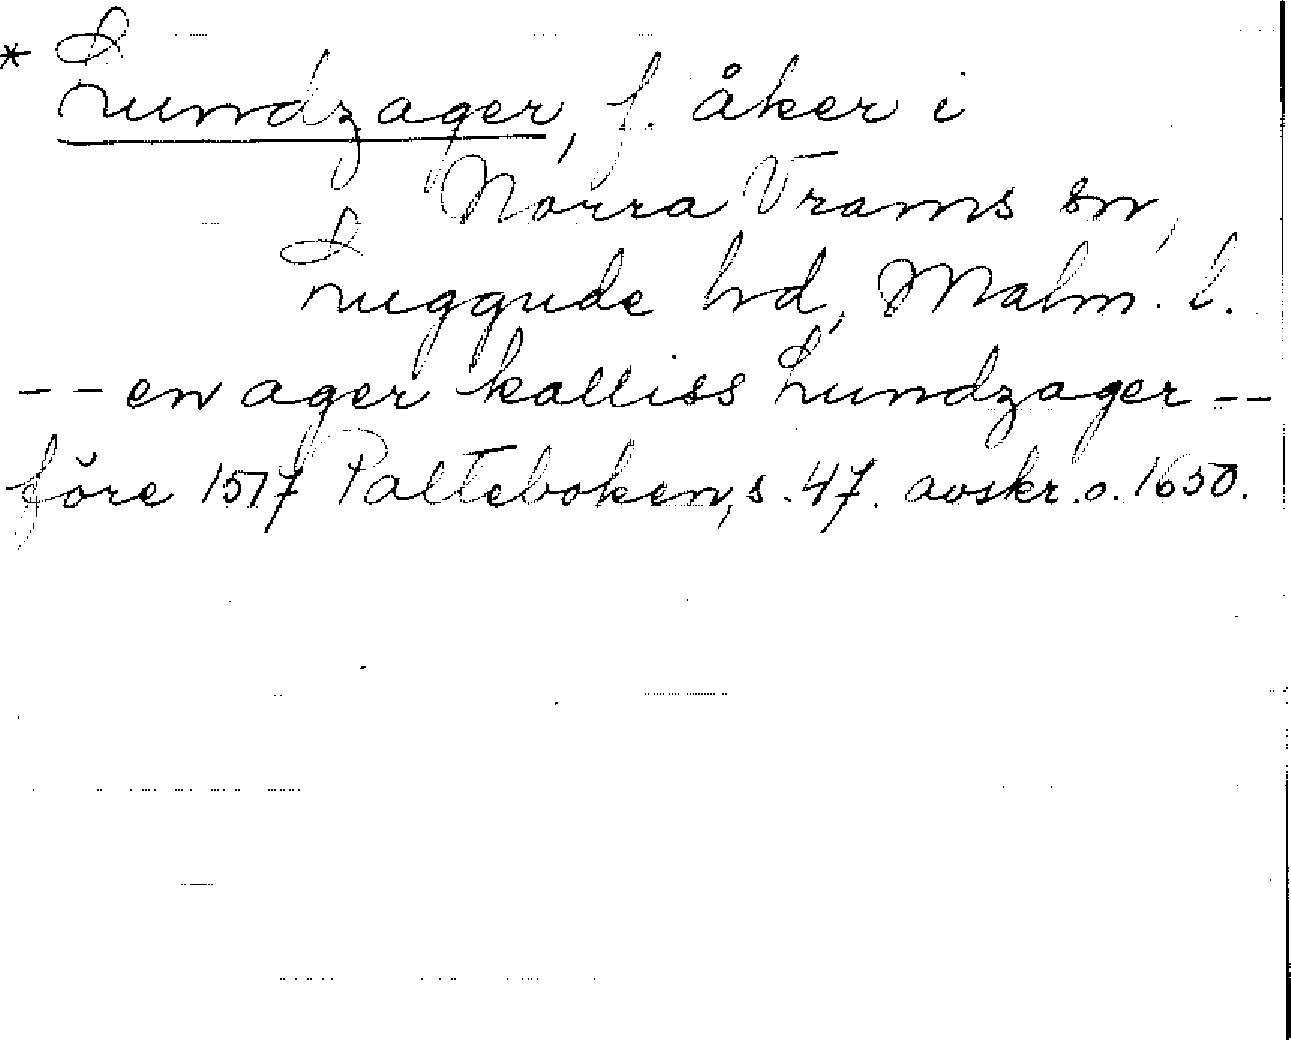 * Lundzager, f. åker i
Norra Vrams sn,
Luggude hrd, Malm. l.
-- en ager kalliss Lundzager --
före 1517 Palteboken, s. 47. avskr. o. 1650.